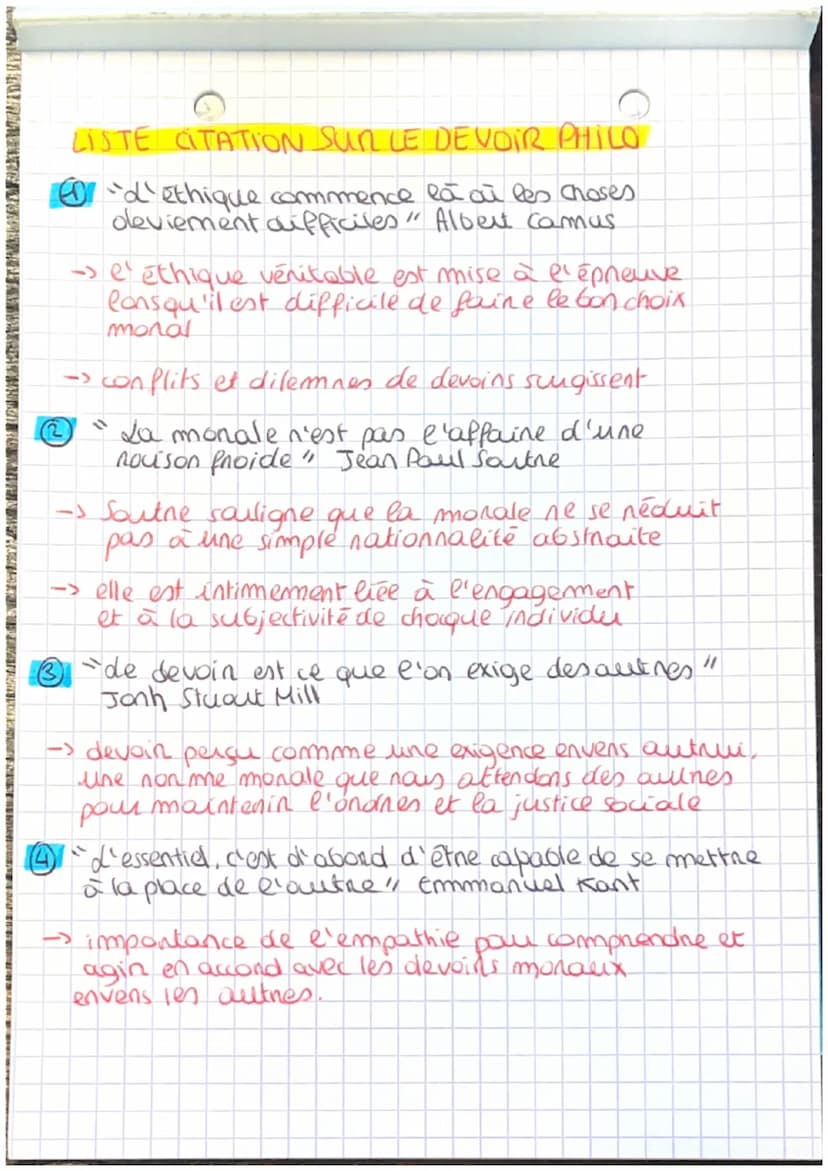 LISTE CITATION SUR LE DEVOIR PHILO
① "L'éthique commmence là où les choses
deviement difficiles" Albert Camus
-> l'éthique véritable est mise à l'épreuve
lorsqu'il est difficile de faire le bon choix
moral
-> conflits et dilemnes de devoirs surgissent
② "La morale n'est pas l'affaire d'une
raison froide" Jean Paul Sartre
-> Sartre souligne que la morale ne se réduit
pas à une simple rationnalité abstraite
-> elle est intimement liée à l'engagement
et à la subjectivité de chaque individu
③ "Le devoir est ce que l'on exige des autres"
Jonh Stuart Mill
-> devoir perçu commme une exigence envers autrui,
une norme morale que nous attendons des autres
pour maintenir l'ordres et la justice sociale
④ "L'essentiel, c'est d'abord d'être capable de se mettre
à la place de l'autre" Emmanuel Kant
-> importance de l'empathie pour comprendre et
agir en accord avec les devoirs moraux
envers les autres.